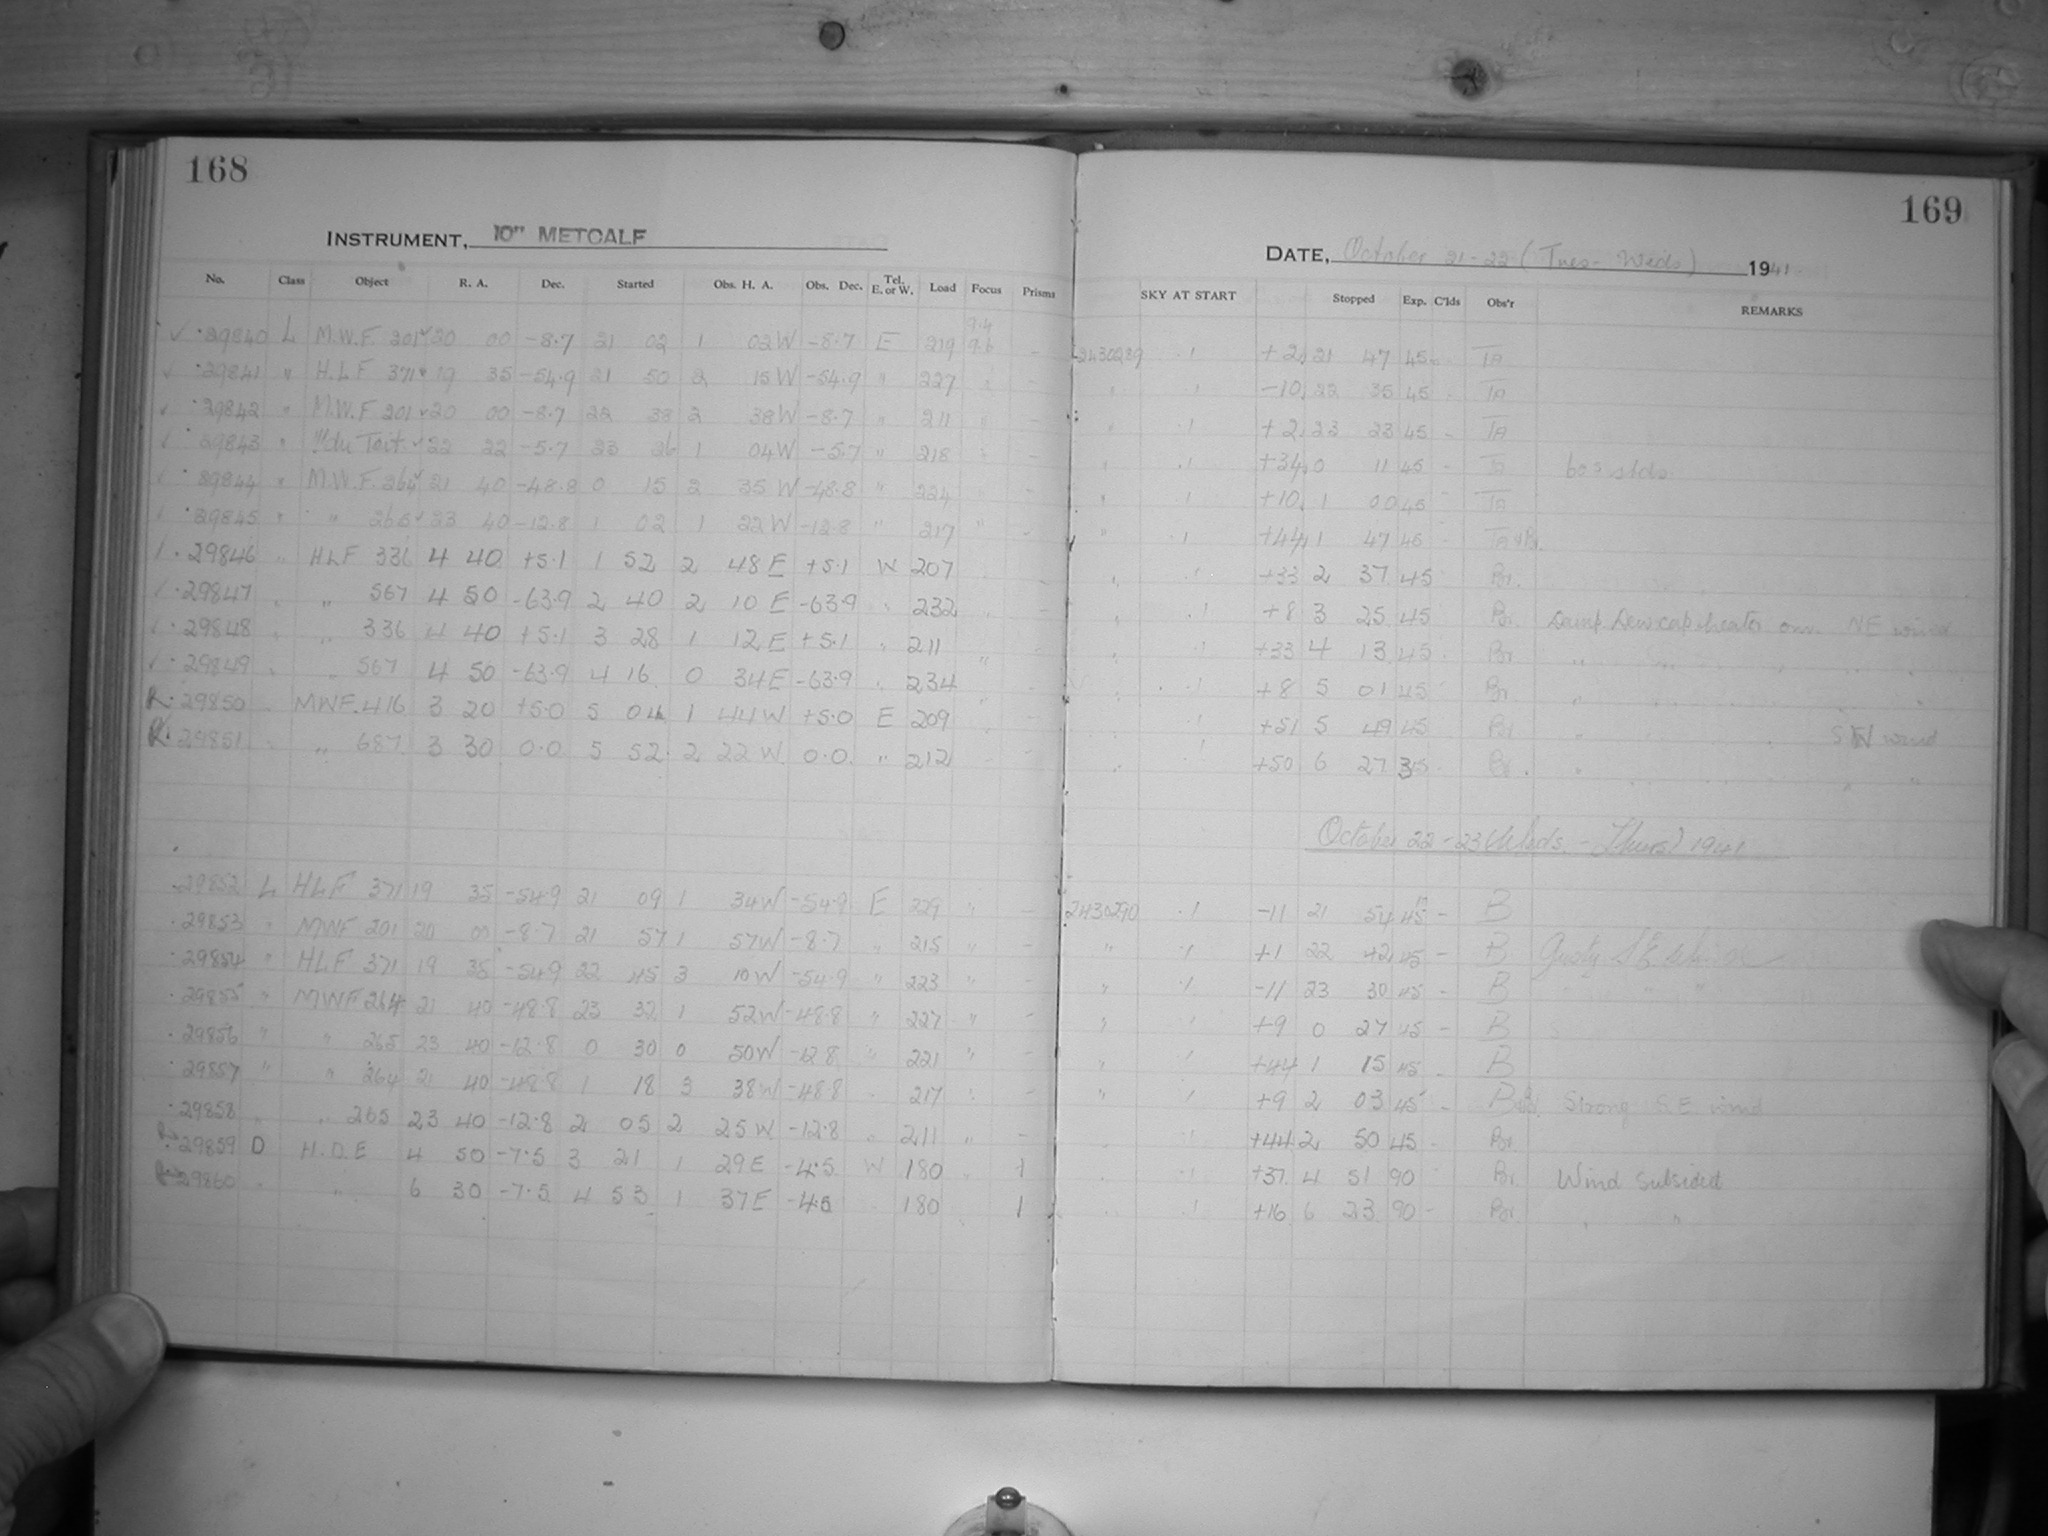 168
INSTRUMENT, 10" METCALF
No. Class Object R. A. Dec. Started Obs. H. A. Obs. Dec. Tel. E. or W. Load Focus Prisms
✓ 29840 L M.W.F. 201 ✓ 20 00 -8.7 21 02 1 02 W -8.7 E 219 9.4 9.6 -
✓ 29841 " H.L.F 371 ✓ 19 35 -54.9 21 50 2 15 W -54.9 " 227 " -
✓ 29842 " M.W.F 201 ✓ 20 00 -8.7 22 38 2 38 W -8.7 " 211 " -
✓ 29843 " du Toit ✓ 22 22 -5.7 23 26 1 04 W -5.7 " 218 " -
✓ 29844 " M.W.F. 264 ✓ 21 40 -48.8 0 15 2 35 W -48.8 " 224 " -
✓ 29845 " " 265 ✓ 23 40 -12.8 1 02 1 22 W -12.8 " 217 " -
✓ 29846 " HLF 336 4 40 +5.1 1 52 2 48 E +5.1 W 207
✓ 29847 " " 567 4 50 -63.9 2 40 2 10 E -63.9 " 232 " -
✓ 29848 " " 336 4 40 +5.1 3 28 1 12 E +5.1 " 211
✓ 29849 " 567 4 50 -63.9 4 16 0 34 E -63.9 " 234 "
R. 29850 MWF. 416 3 20 +5.0 5 04 1 44 W +5.0 E 209
R. 29851 " 687 3 30 0.0 5 52 2 22 W 0.0 " 212
29852 L HLF 371 19 35 -54.9 21 09 1 34 W -54.9 E 229 " -
29853 " MWF 201 20 00 -8.7 21 57 1 57 W -8.7 " 215 " -
29854 " HLF 371 19 35 -54.9 22 45 3 10 W -54.9 " 223 " -
29855 " MWF 264 21 40 -48.8 23 32 1 52 W -48.8 " 227 " -
29856 " " 265 23 40 -12.8 0 30 0 50 W -12.8 " 221 " -
29857 " " 264 21 40 -48.8 1 18 3 38 W -48.8 217 -
29858 " " 265 23 40 -12.8 2 05 2 25 W -12.8 " 211 " -
29859 D H.D.E 4 50 -7.5 3 21 1 29 E -4.5 W 180 1
29860 " " 6 30 -7.5 4 53 1 37 E -4.5 180 1
169
DATE, October 21-22 (Tues - Weds) 1941
SKY AT START Stopped Exp. C'lds Obs'r REMARKS
2430289 .1 +2 21 47 45 - TA
" .1 -10 22 35 45 TA
" .1 +2 23 23 45 - TA
" .1 +34 0 11 45 - TA 60s
" .1 +10 1 00 45 - TA
" .1 +44 1 47 45 - TA & Br.
" .1 +33 2 37 45 Br.
" .1 +8 3 25 45 Br. Damp. Dewcap heater on. NE wind
" .1 +33 4 13 45 Br. "
" .1 +8 5 01 45 Br. "
.1 +51 5 49 45 Br. " wind
" .1 +50 6 27 35 Br. "
October 22-23 (Weds. - Thurs.) 1941
2430290 .1 -11 21 54 45 - B
" .1 +1 22 42 45 - B Gusty S.E.
" .1 -11 23 30 45 - B " " "
" .1 +9 0 27 45 - B
" .1 +44 1 15 45 - B
" .1 +9 2 03 45 - B & Br. Strong S.E wind
.1 +44 2 50 45 - Br.
.1 +37 4 51 90 Br. Wind subsided
.1 +16 6 23 90 - Br. " "